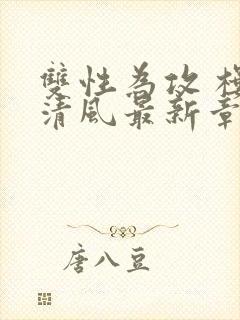 雙性為攻 
清風最新章
唐八豆